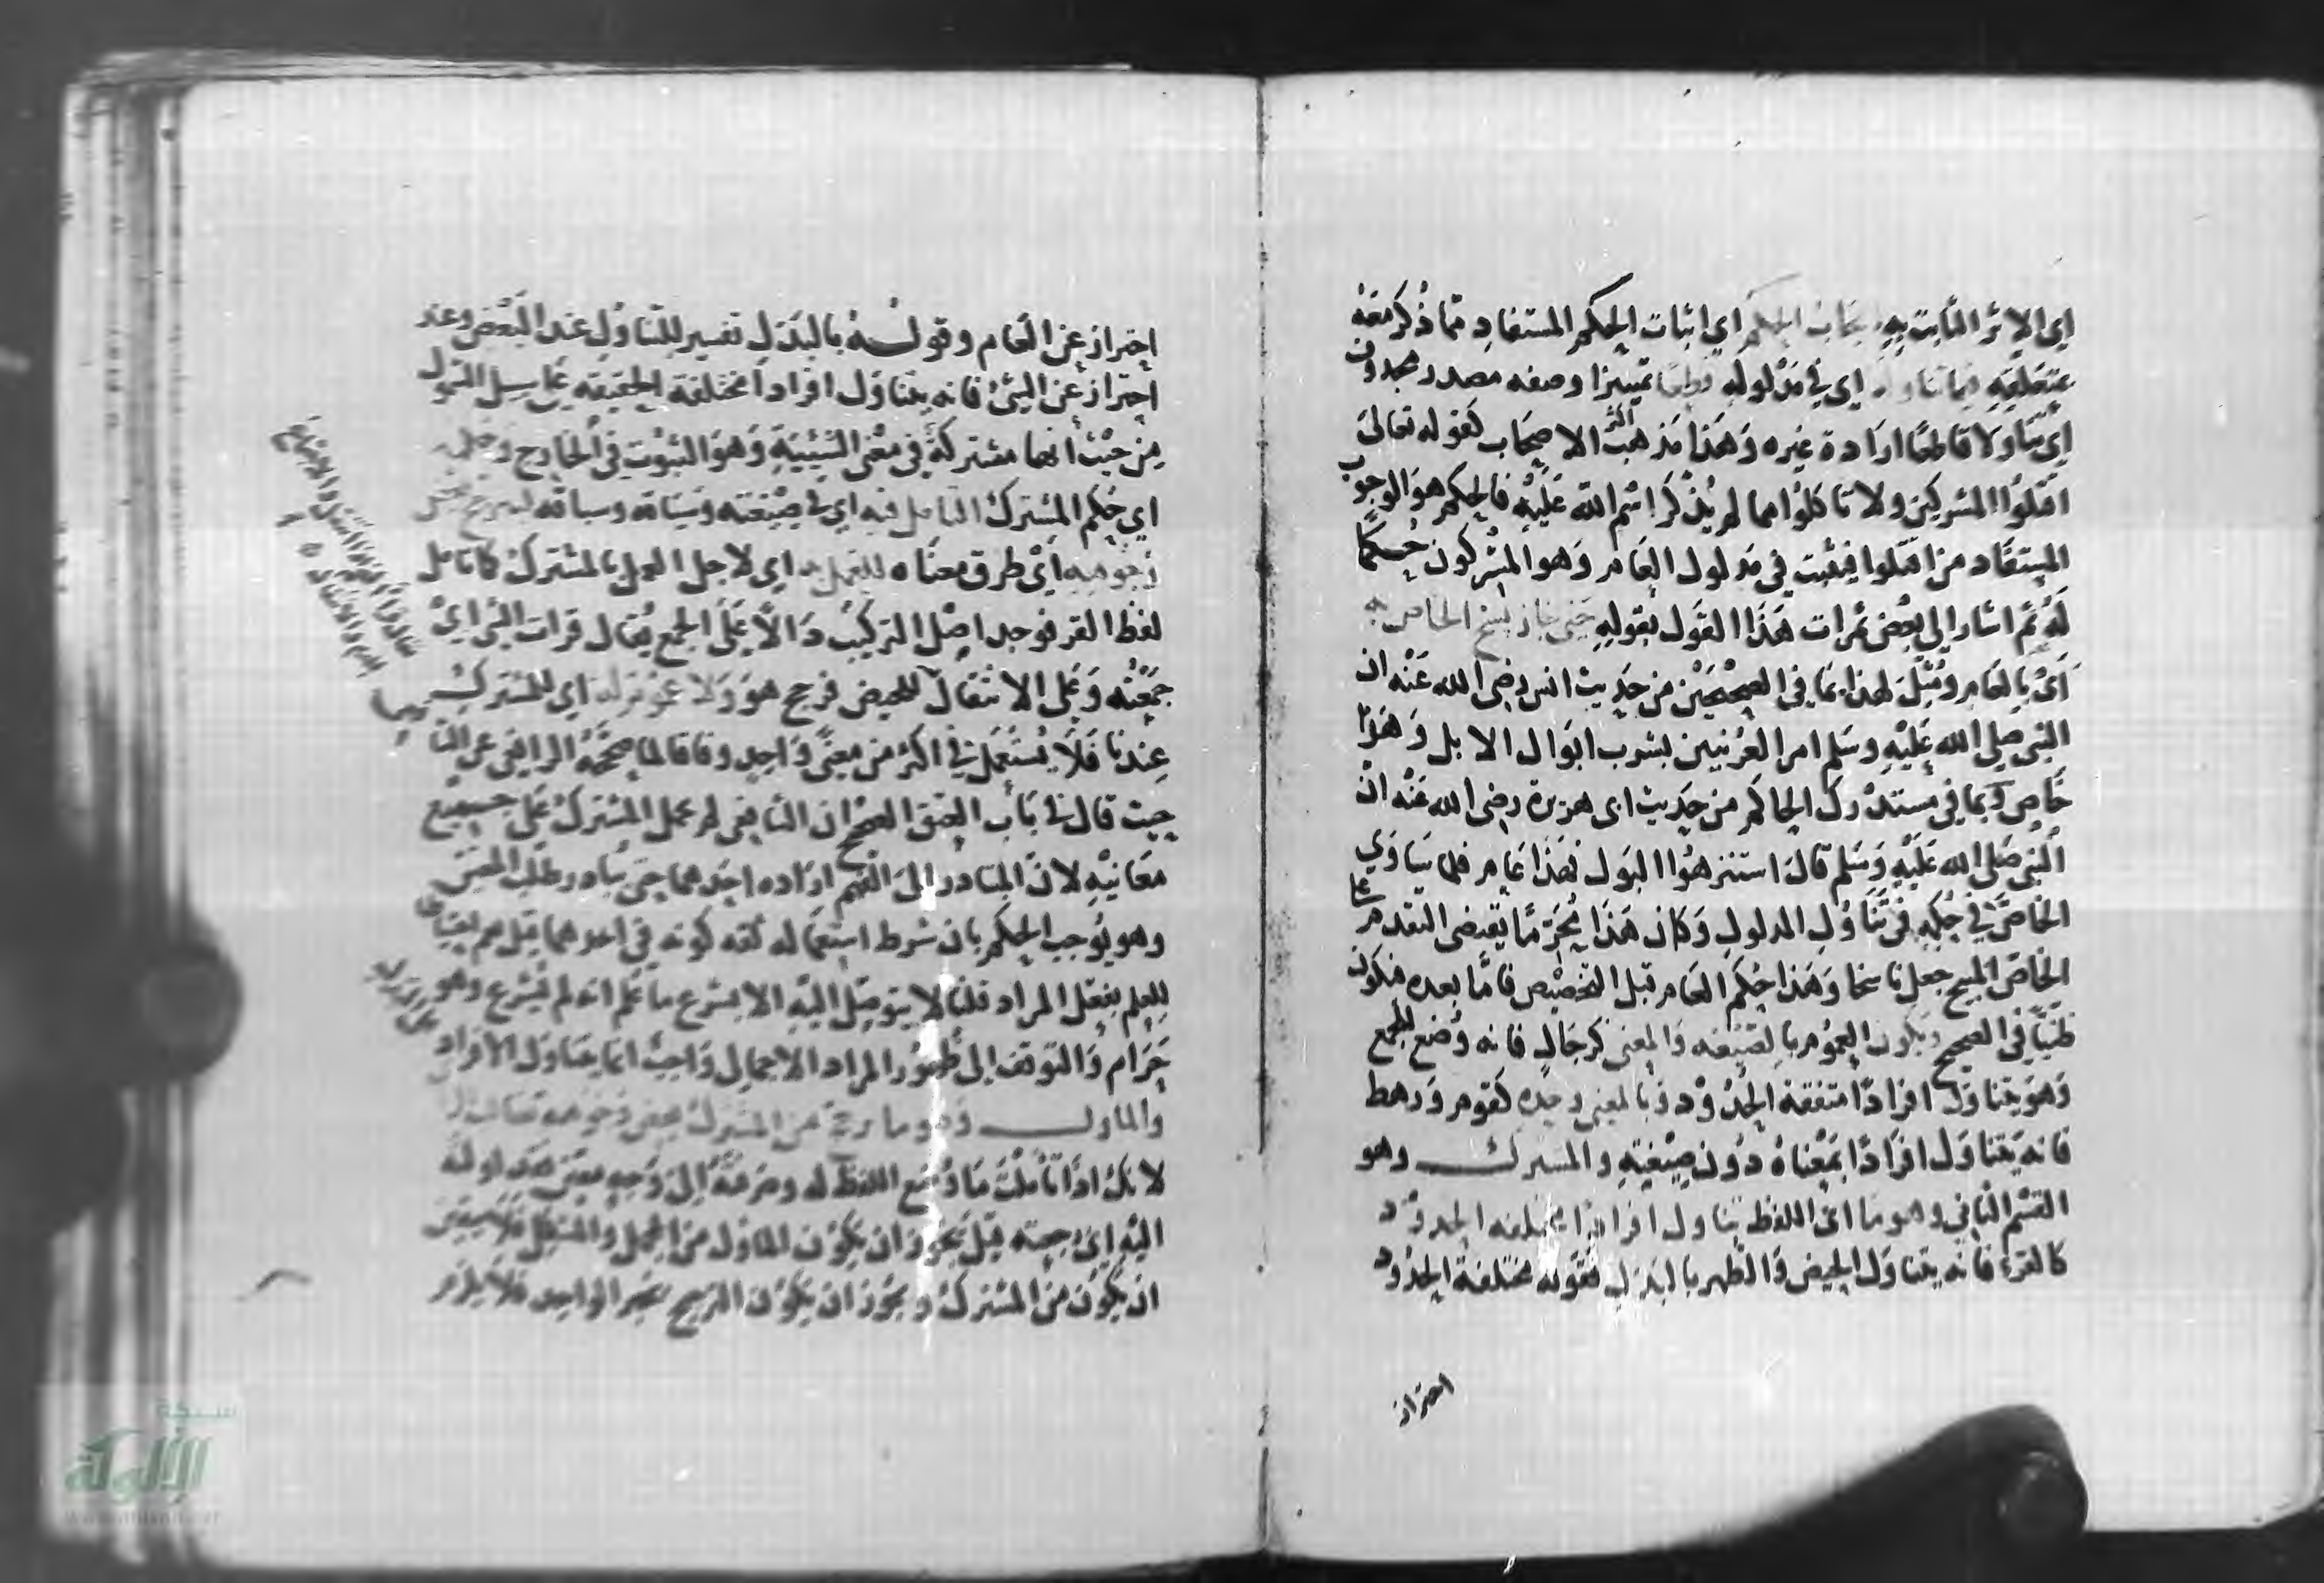 اي الاثر الثابت به ايجاب الحكم اي اثبات الحكم المستفاد مما ذكر معه
فيما تناوله اي في مدلوله قطعا تمييز او صفه مصدر محذوف
اي تناولا قاطعا ارادة غيره وهذا مذهب اكثر الاصحاب كقوله تعالى
اقتلوا المشركين ولا تاكلوا مما لم يذكر اسم الله عليه فالحكم هو الوجوب
المستفاد من اقتلوا فيثبت في مدلول العام وهو المشركون حكما
له ثم اشار الى بعض ثمرات هذا القول بقوله حتى جاز نسخ الخاص به
اي بالعام ومثل لهذا بما في الصحيحين من حديث انس رضي الله عنه ان
النبي صلى الله عليه وسلم امر العرنيين بشرب ابوال الابل وهذا
خاص وبما في مستدرك الحاكم من حديث ابي هريرة رضي الله عنه ان
النبي صلى الله عليه وسلم قال استنزهوا البول فهذا عام فلما يساوي
الخاص في حكمه في تناول المدلول وكان هذا محرما يقتضي التقدم على
الخاص المبيح جعل ناسخا وهذا حكم العام قبل التخصيص فاما بعده فيكون
ظنيا في الصحيح ويكون العموم بالصيغه والمعنى كرجال فانه وضع للجمع
وهو يتناول افرادا متفقة الحدود وبالمعنى وحده كقوم ورهط
فانه يتناول افرادا بمعناه دون صيغته والمشترك وهو
القسم الثاني وهو ما اي اللفظ يتناول افرادا مختلفه الحدود
كالقرء فانه يتناول الحيض والطهر بالبدل فقوله مختلفة الحدود
احتراز
احتراز عن العام وقوله بالبدل تفسير للتناول عند البعض وعند
احتراز عن الشئ فانه يتناول افرادا مختلفة الحقيقه على سبيل الشمول
من حيث انها مشتركة في معنى الشيئية وهو الثبوت في الخارج وحكمه
اي حكم المشترك التامل فيه اي في صيغته وسياقه وسباقه ليترجح بعض
وجوهه اي طرق معناه للعمل به اي لاجل العمل بالمشترك كما تامل
لفظ القرء فوجد اصل التركيب دالا على الجمع يقال قرات الشئ اي
جمعته وعلى الانتقال للحيض فرجح هو ولا عموم له اي للمشترك
عندنا فلا يستعمل في اكثر من معنى واحد وفاقا لما صححه الرافعي عن
حيث قال في باب العتق الصحيح ان الشافعي لم يحمل المشترك على جميع
معانيه لان المتبادر الى الفهم اراده احدهما حتى يتبادر طلب المعين
وهو يوجب الحكم بان شرط استعماله لغه كونه في احدهما
للعلم بفعل المراد قلنا لا يتوصل اليه الا بشرع ما علم انه لم يشرع وهو
حرام والتوقف الى ظهور المراد الاجمالي واجب انما يتناول الافراد
والماول وهو ما ترجح من المشترك بعض وجوهه
لانك اذا تاملت ما وضع اللفظ له وصرفته الى وجه معين فقد اولته
اليه اي رجعته قيل يجوز ان يكون الماول من المجمل والمشكل فلا يتعين
ان يكون من المشترك ويجوز ان يكون الترجيح بخبر الواحد فلا يلزم